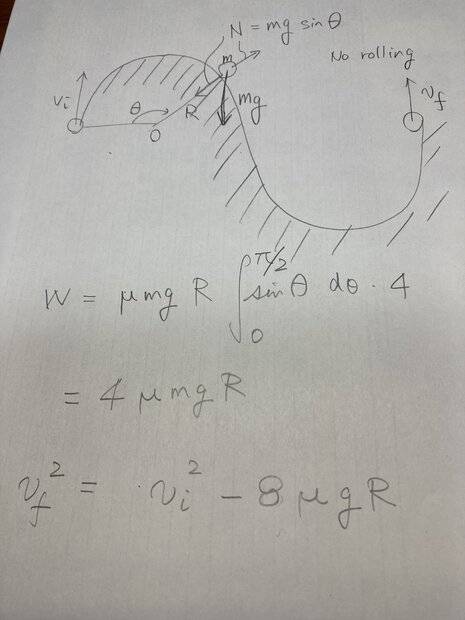 N = mg sin θ
m
No rolling
vi
θ
R
mg
vf
O
W = μmg R ∫0^π/2 sin θ dθ · 4
= 4 μmgR
vf^2 = vi^2 − 8μgR